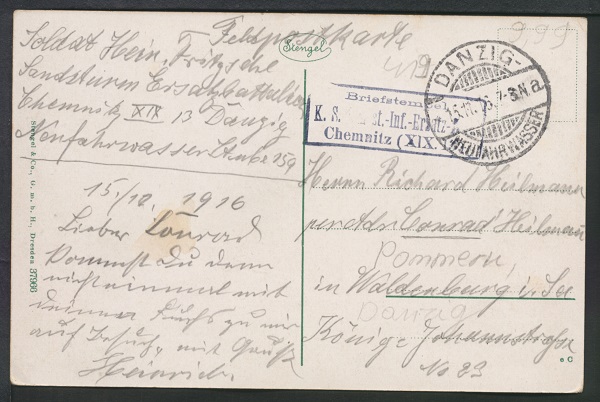 Feldpostkarte
Soldat Hein. Fritzsche
Landsturm Ersatzbattalion
Chemnitz XIX 13 Danzig
Neufahrwasser Stube 159
15./10. 1916
Lieber Conrad
Kommst Du denn
nicht einmal mit
deiner Fuchs zu mir
auf Besuch, mit Gruß
Heinrich.
Stengel
419
999
DANZIG-
7-8N.a
NEUFAHRWASSER
Briefstempel
K. S. st.-Inf.-Ersatz-
Chemnitz (XIX.
Herrn Richard Heilmann
per Adr. Conrad Heilman
Pommern,
in Waldenburg i. Sa
Danzig
Königs Johannstraße
No 83
Stengel & Co., G. m. b. H., Dresden 37903
e C